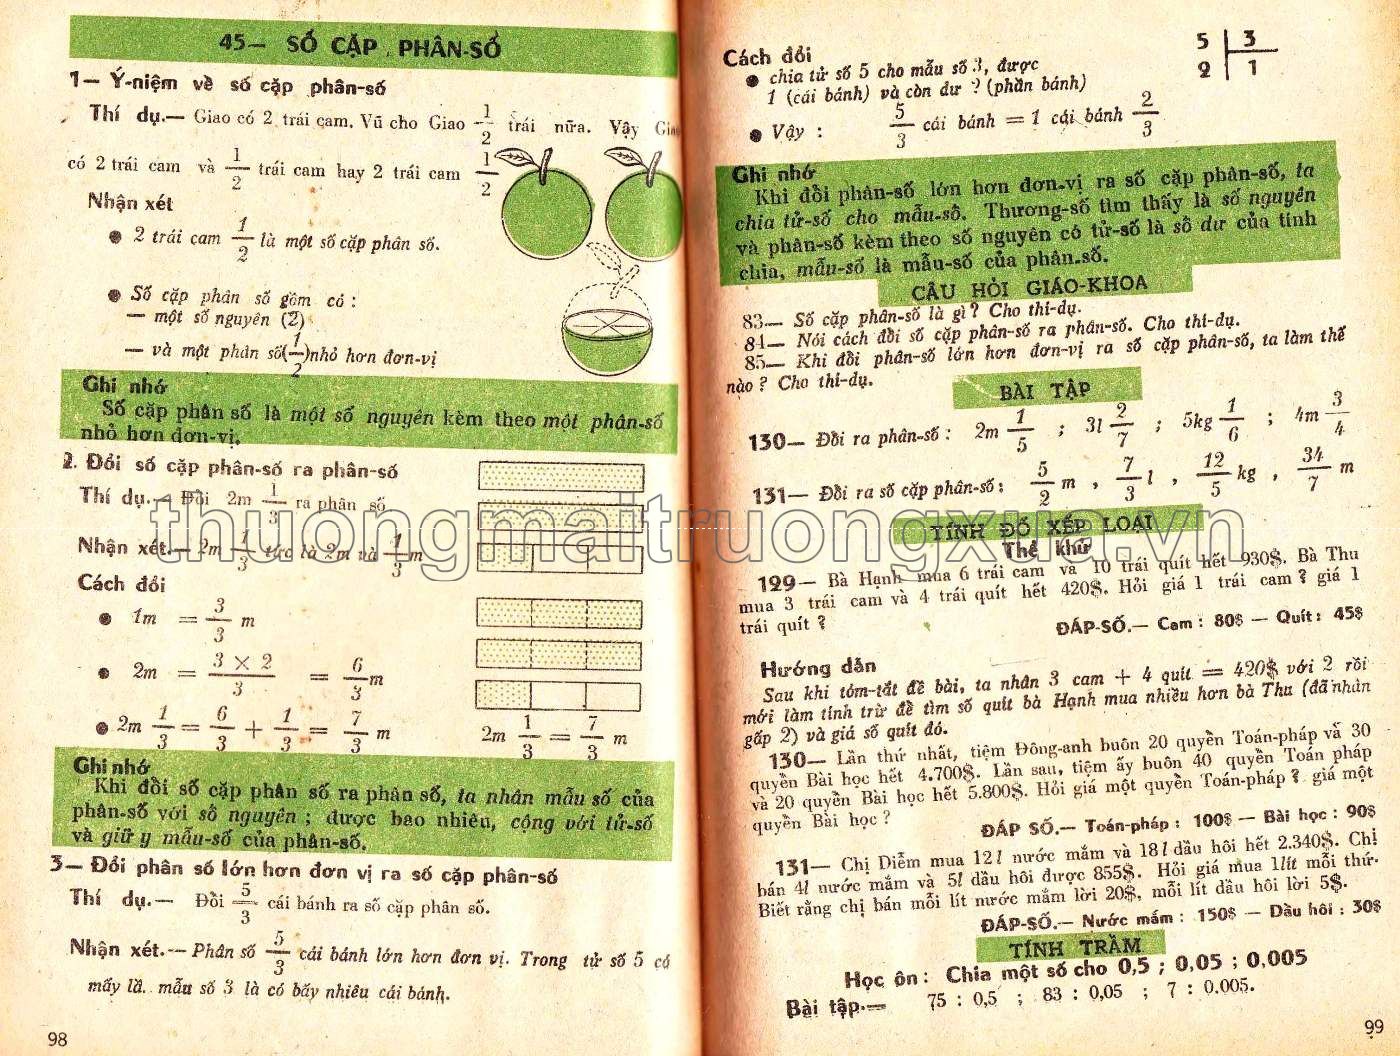 45— SỐ CẶP PHÂN-SỐ
1— Ý-niệm về số cặp phân-số
Thí dụ.— Giao có 2 trái cam. Vũ cho Giao 1/2 trái nữa. Vậy
có 2 trái cam và 1/2 trái cam hay 2 trái cam 1/2
Nhận xét
● 2 trái cam 1/2 là một số cặp phân số.
● Số cặp phân số gồm có :
— một số nguyên (2)
— và một phân số (1/2) nhỏ hơn đơn-vị
Ghi nhớ
Số cặp phân số là một số nguyên kèm theo một phân-số
nhỏ hơn đơn-vị.
2. Đổi số cặp phân-số ra phân-số
Thí dụ.— Đổi 2m 1/3 ra phân số
Nhận xét.— 2m 1/3 tức là 2m và 1/3 m
Cách đổi
● 1m = 3/3 m
● 2m = 3 × 2/3 = 6/3 m
● 2m 1/3 = 6/3 + 1/3 = 7/3 m
2m 1/3 = 7/3 m
Ghi nhớ
Khi đổi số cặp phân số ra phân số, ta nhân mẫu số của
phân-số với số nguyên ; được bao nhiêu, cộng với tử-số
và giữ y mẫu-số của phân-số.
3— Đổi phân số lớn hơn đơn vị ra số cặp phân-số
Thí dụ.— Đổi 5/3 cái bánh ra số cặp phân số.
Nhận xét.— Phân số 5/3 cái bánh lớn hơn đơn vị. Trong tử số 5 có
mấy lần mẫu số 3 là có bấy nhiêu cái bánh.
98
Cách đổi
● chia tử số 5 cho mẫu số 3, được
1 (cái bánh) và còn dư 2 (phần bánh)
5 3
2 1
● Vậy : 5/3 cái bánh = 1 cái bánh 2/3
Ghi nhớ
Khi đổi phân-số lớn hơn đơn-vị ra số cặp phân-số, ta
chia tử-số cho mẫu-số. Thương-số tìm thấy là số nguyên
và phân-số kèm theo số nguyên có tử-số là số dư của tính
chia, mẫu-số là mẫu-số của phân-số.
CÂU HỎI GIÁO-KHOA
83— Số cặp phân-số là gì ? Cho thí-dụ.
84— Nói cách đổi số cặp phân-số ra phân-số. Cho thí-dụ.
85— Khi đổi phân-số lớn hơn đơn-vị ra số cặp phân-số, ta làm thế
nào ? Cho thí-dụ.
BÀI TẬP
130— Đổi ra phân-số : 2m 1/5 ; 3l 2/7 ; 5kg 1/6 ; 4m 3/4
131— Đổi ra số cặp phân-số : 5/2 m , 7/3 l , 12/5 kg , 34/7 m
TÍNH ĐỐ XẾP LOẠI
Thể khử
129— Bà Hạnh mua 6 trái cam và 10 trái quít hết 930$. Bà Thu
mua 3 trái cam và 4 trái quít hết 420$. Hỏi giá 1 trái cam ? giá 1
trái quít ?
ĐÁP-SỐ.— Cam : 80$ — Quít : 45$
Hướng dẫn
Sau khi tóm-tắt đề bài, ta nhân 3 cam + 4 quít = 420$ với 2 rồi
mới làm tính trừ để tìm số quít bà Hạnh mua nhiều hơn bà Thu (đã nhân
gấp 2) và giá số quít đó.
130— Lần thứ nhất, tiệm Đông-anh buôn 20 quyển Toán-pháp và 30
quyển Bài học hết 4.700$. Lần sau, tiệm ấy buôn 40 quyển Toán pháp
và 20 quyển Bài học hết 5.800$. Hỏi giá một quyển Toán-pháp ? giá một
quyển Bài học ?
ĐÁP SỐ.— Toán-pháp : 100$ — Bài học : 90$
131— Chị Diễm mua 12l nước mắm và 18l dầu hôi hết 2.340$. Chị
bán 4l nước mắm và 5l dầu hôi được 855$. Hỏi giá mua 1lít mỗi thứ.
Biết rằng chị bán mỗi lít nước mắm lời 20$, mỗi lít dầu hôi lời 5$.
ĐÁP-SỐ.— Nước mắm : 150$ — Dầu hôi : 30$
TÍNH TRẦM
Học ôn : Chia một số cho 0,5 ; 0,05 ; 0,005
Bài tập.— 75 : 0,5 ; 83 : 0,05 ; 7 : 0.005.
99
thuongmaitruongxua.vn